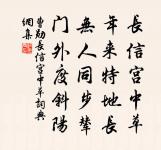 長信宮中草
年來特地長
無人同步輦
門外度斜陽
曹勛長信宮中草詞典
網集